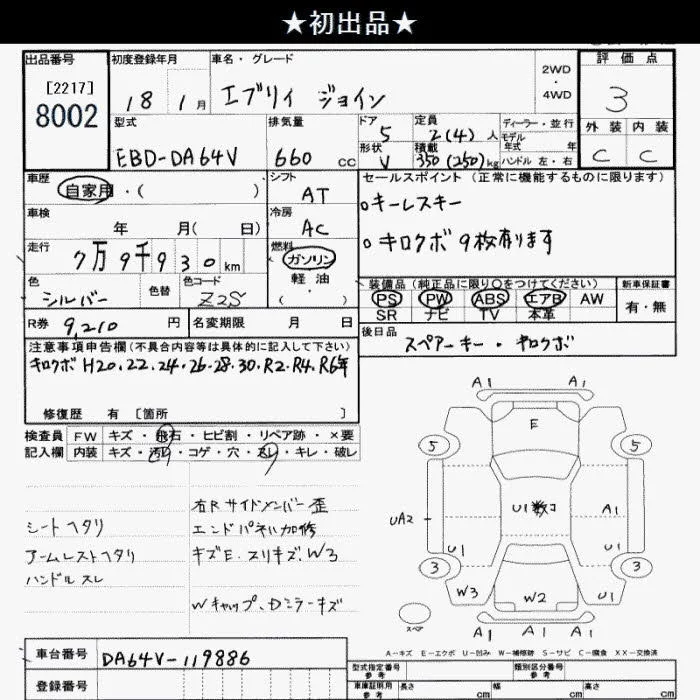 ★初出品★
出品番号
[2217]
8002
初度登録年月
18 1月
車名・グレード
エブリィ ジョイン
2WD
・
4WD
評価点
3
外装 内装
C C
型式
EBD-DA64V
排気量
660 cc
ドア 5
形状 V
定員 2(4)人
積載 350(250)kg
ディーラー・並行
モデル年式 年
ハンドル 左・右
車歴
自家用・( )
シフト
AT
車検
年 月( 日)
冷房
AC
走行
7万9千930km
燃料
ガソリン
軽油
( )
色
シルバー
色替
色コード
Z2S
R券 9,210 円
名変期限 月 日
セールスポイント(正常に機能するものに限ります)
○キーレスキー
○キロクボ9枚有ります
装備品(純正品に限り○をつけてください)
PS PW ABS エアB AW
SR ナビ TV 本革
新車保証書
有・無
後日品
スペアーキー・キロクボ
注意事項申告欄(不具合内容等は具体的に記入して下さい)
キロクボ H20.22.24.26.28.30.R2.R4.R6年
修復歴 有 [箇所 ]
検査員記入欄
FW キズ・飛石・ヒビ割・リペア跡・×要
内装 キズ・汚れ・コゲ・穴・スレ・キレ・破レ
シートヘタリ
アームレストヘタリ
ハンドルスレ
右Rサイドメンバー歪
エンドパネル加修
キズE.スリキズ.W3
Wキャップ、Dミラーキズ
A1 A1
E
5 5
UA2
U1数コ
A1
U1 U1
3 3
W3
W2
U1
スペア
A1 A1 A1
A-キズ E-エクボ U-凹み W-補修跡 S-サビ C-腐食 XX-交換済
車台番号 DA64V-119886
登録番号
型式指定番号
参考
類別区分番号
参考
車庫証明用
参考
長さ cm
幅 cm
高さ cm